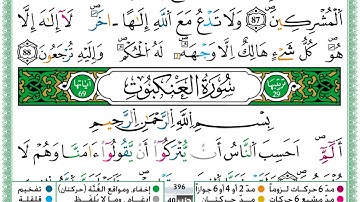 ٱلْمُشْرِكِينَ ﴿87﴾ وَلَا تَدْعُ مَعَ ٱللَّهِ إِلَٰهًا ءَاخَرَ ۘ لَآ إِلَٰهَ إِلَّا
هُوَ ۚ كُلُّ شَىْءٍ هَالِكٌ إِلَّا وَجْهَهُۥ ۚ لَهُ ٱلْحُكْمُ وَإِلَيْهِ تُرْجَعُونَ ﴿88﴾
ترتيبها 29 سُورَةُ الْعَنْكَبُوت آياتها 69
بِسْمِ ٱللَّهِ ٱلرَّحْمَٰنِ ٱلرَّحِيمِ
الٓمٓ ۝ أَحَسِبَ ٱلنَّاسُ أَن يُتْرَكُوٓا۟ أَن يَقُولُوٓا۟ ءَامَنَّا وَهُمْ لَا
مدّ 6 حركات لزوماً مدّ 2 أو 4 أو 6 جوازاً 396 إخفاء، ومواقع الغُنَّة (حركتان) تفخيم
مدّ مشبع 6 حركات مدّ حركتان 40 إدغام، وما لا يُلفظ قلقلة